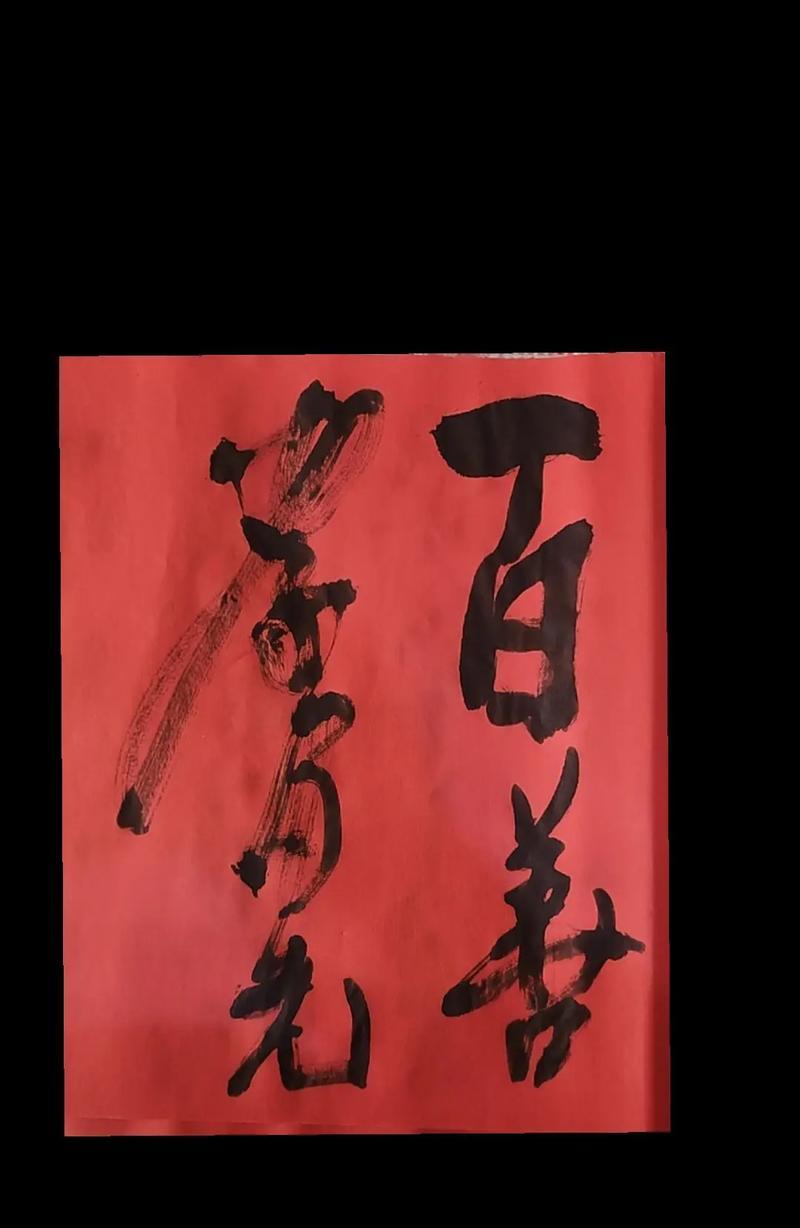 百善
孝为先